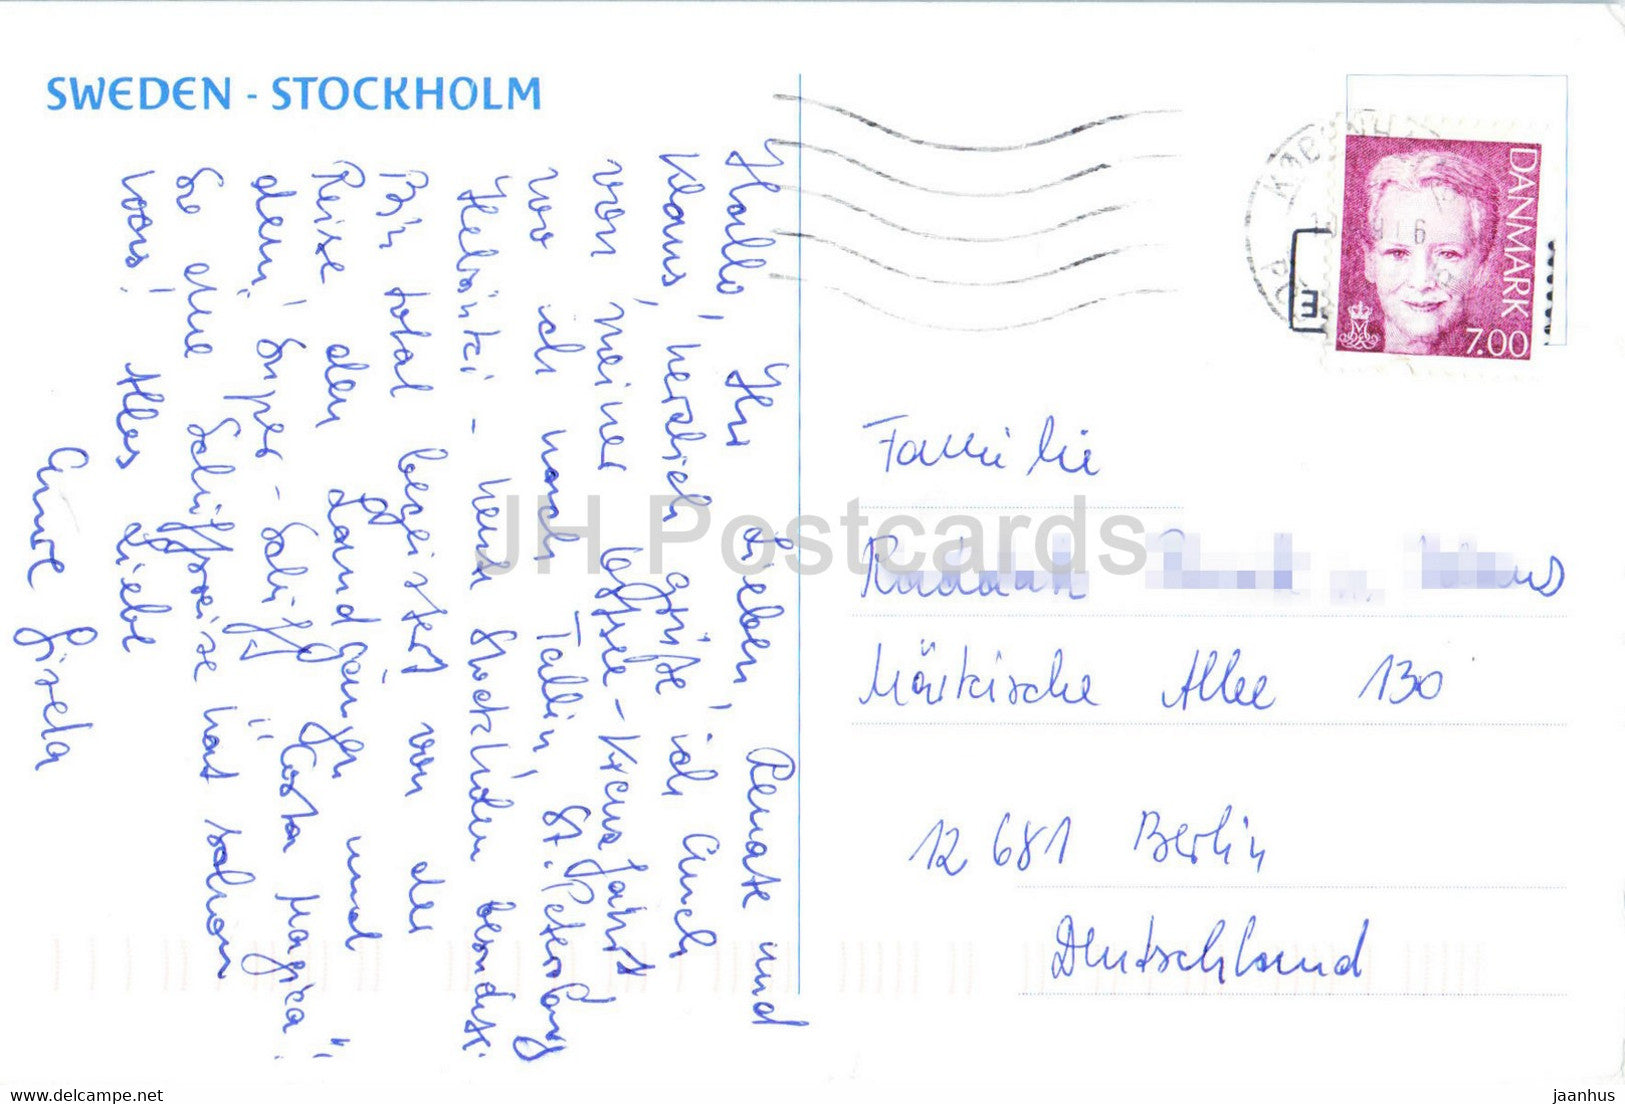 SWEDEN - STOCKHOLM
Hallo, Ihr Lieben, Renate und
Klaus, herzlich grüße ich Euch
von meiner Ostsee-Kreuzfahrt
wo ich nach Tallin, St. Petersburg
Helsinki - heute Stockholm besuchte.
Bin total begeistert von der
Reise den Landgängen und
dem "Super-Schiff" "Costa Magica".
So eine Schiffsreise hat schon
was! Alles Liebe
Eure Gisela
KØBENH
DANMARK
7.00
Familie
Märkische Allee 130
12681 Berlin
Deutschland
JH Postcards
jaanhus